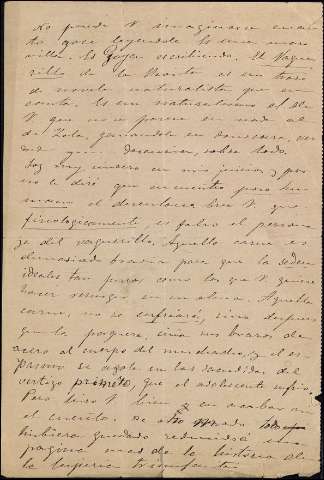 No puede V imaginarse cuan
to gocé leyéndole. Es una mara
villa. Es Goya escribiendo. El Vaque
rillo de la Puente es un trozo
de novela naturalista que en
canta. Es un naturalismo el de
V que no se parece en nada al
de Zola, ganándole en donosura, ver
dad y sobre todo.
Soy muy sincero en mis juicios y por
eso le diré que encuentro poco hu
mano el desenlace. Creo V. que
fisiologicamente es falso el persona
je del vaquerillo. Aquella carne es
demasiado bravía para que la seden
ideales tan puros como los que V quiere
hacer en su alma. Aquella
carne, no se enfriaría, sino despues
que la sus brazos de
acero al cuerpo del y el es
pasmo se agota en las sacudidas del
vertigo primero, que el adolescente sufrio.
Pero hizo V bien en acabar asi
el cuento. De otro modo
hubiera quedado reducido a una
pagina mas de la historia de
la lujuria triunfante.